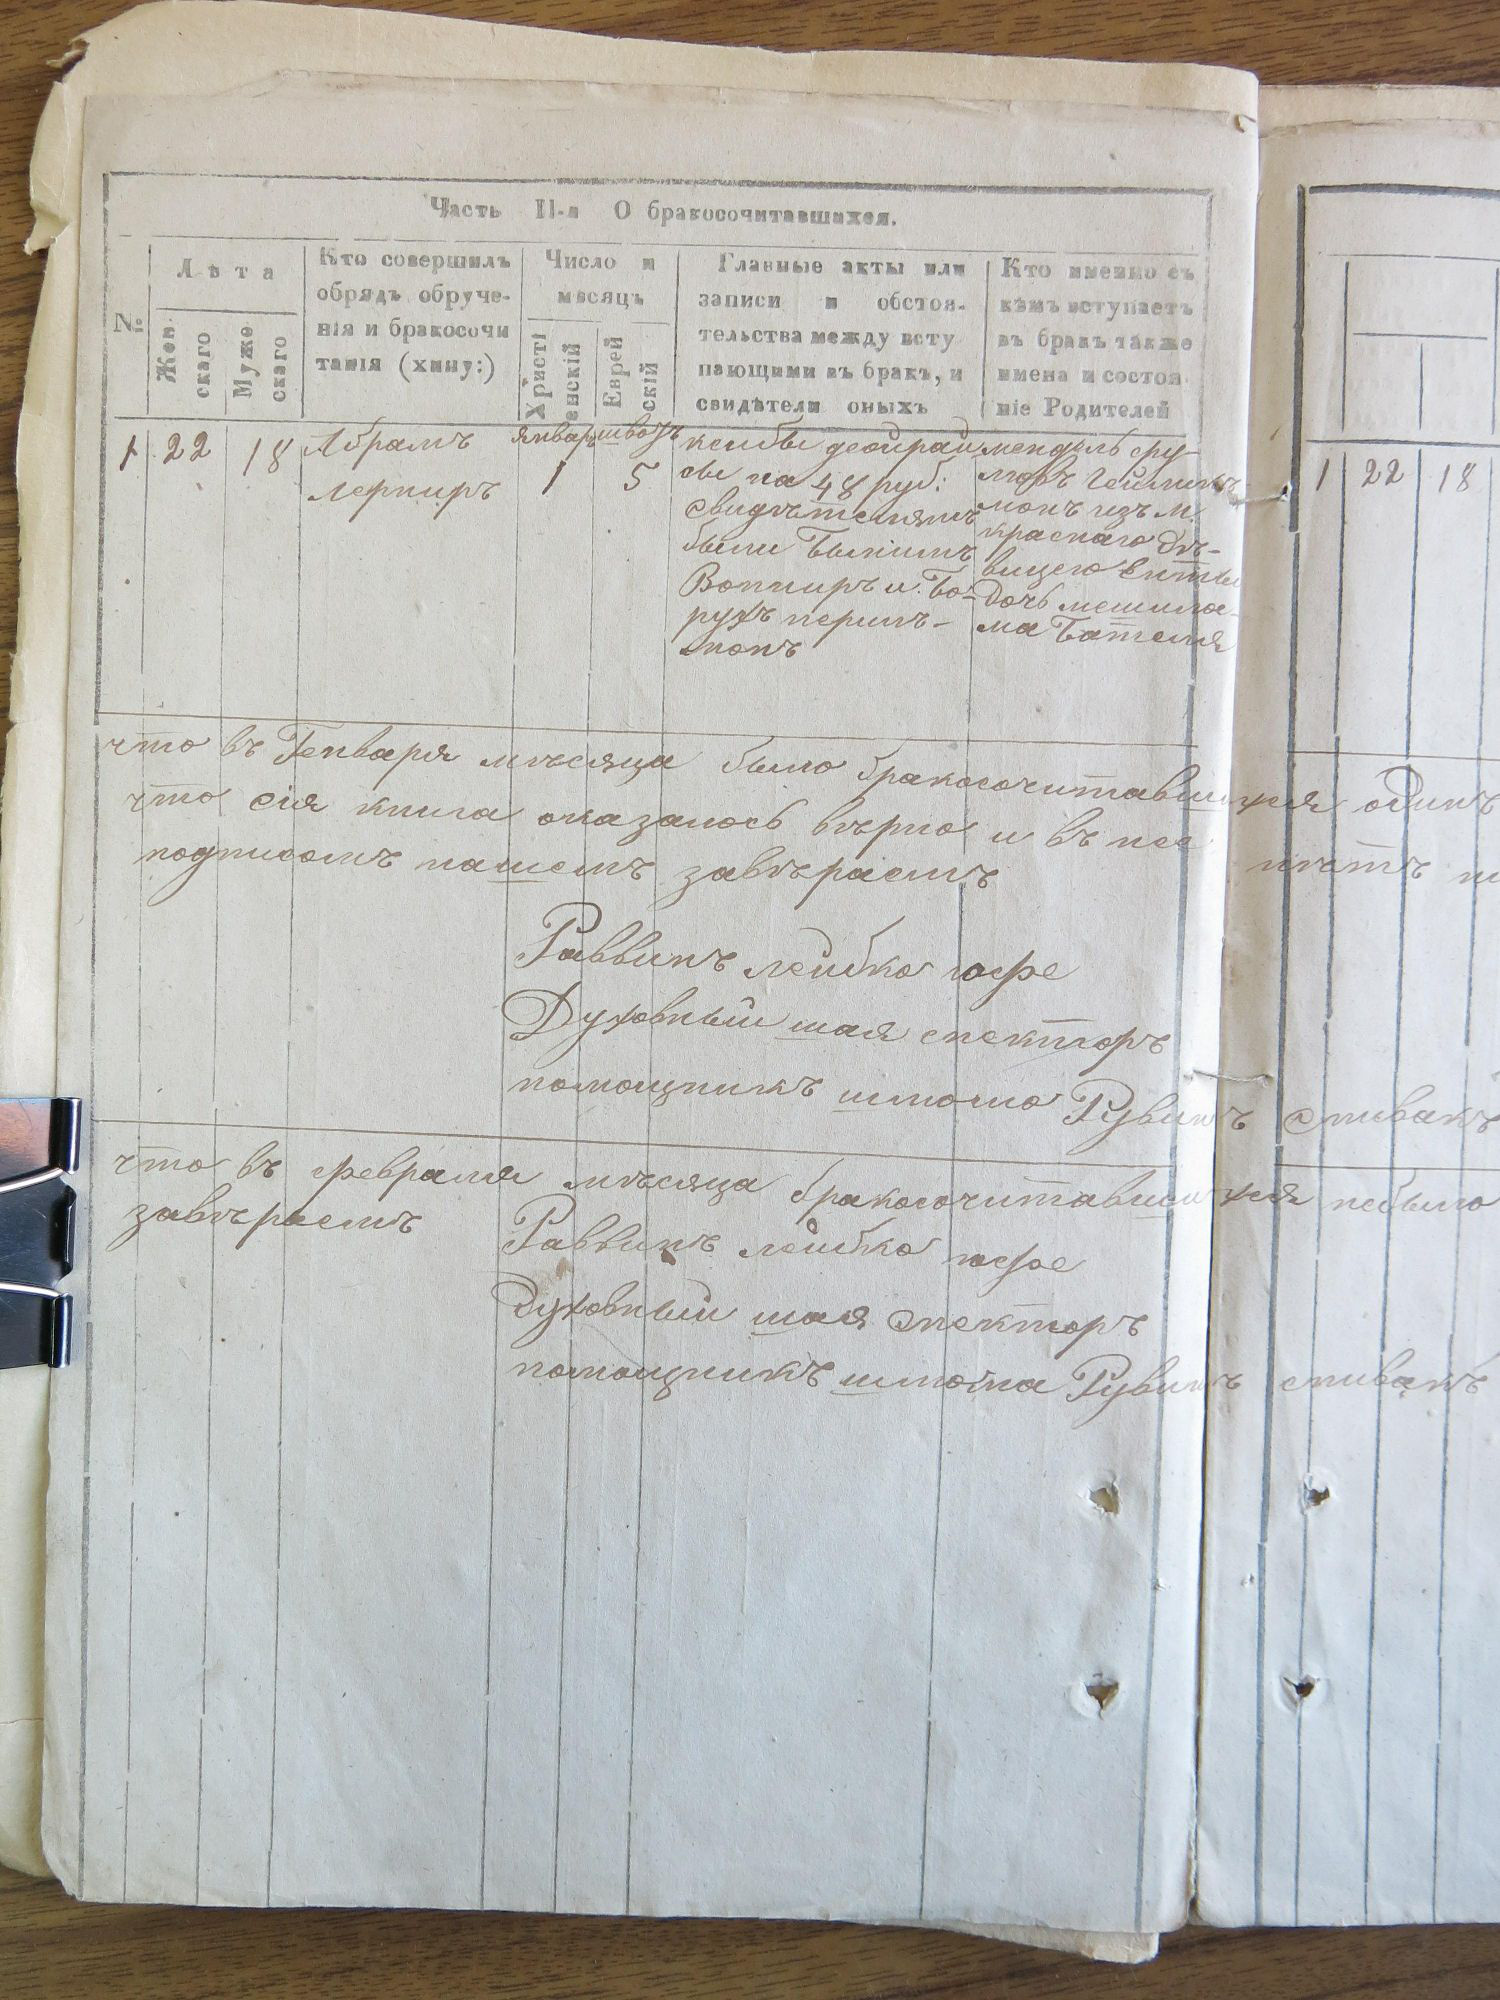 Часть II-я О бракосочитавшихся.
№
Лѣта
Женскаго
Мужескаго
Кто совершилъ
обрядъ обруче-
нія и бракосочи
танія (хину:)
Число и
мѣсяцъ
Христіенскій
Еврейскій
Главные акты или
записи и обстоя-
тельства между всту
пающими въ бракъ, и
свидѣтели оныхъ
Кто именно съ
кѣмъ вступаетъ
въ бракъ также
имена и состоя
ніе Родителей
1 22 18
Абрамъ
Лерниръ
январ
1
5
на 48 руб:
Свидѣтелями
были
и Бо-
рухъ перилъ-
монъ
мендиль сру-
изъ м.
краснаго дѣ-
вицею
Дочь
1 22 18
что въ Генваря мѣсяца было бракосочитавшихся одинъ
что сія книга оказалось вѣрно и въ нее нѣтъ
подписомъ нашемъ завѣраемъ
Раввинъ лейбко юфе
Духовный шая спекторъ
помощникъ шлома Рувинъ спивакъ
что въ февраля мѣсяца бракосочитавшихся небыло
завѣраемъ
Раввинъ лейбко юфе
Духовный шая спекторъ
помощникъ шлома Рувинъ спивакъ